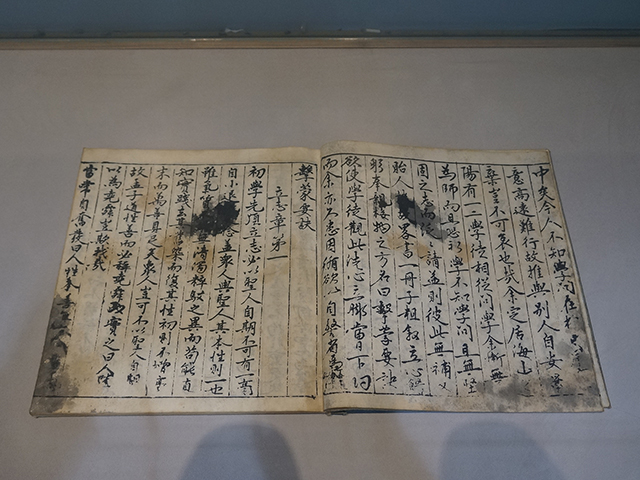 中矣今人不知學問在於
意高遠難行故推與別人自安暴
棄豈不可哀也哉余定居海山之
陽有一二學徒相從問學余慚無以
為師而且恐初學不知學問且無堅
固之志而泛請益則彼此無補反
貽人畧書一冊子粗敘立心飭
躬奉親接物之方名曰擊蒙要訣
欲使學徒觀此洗心立脚當日下功
而余亦久患因循欲以自警省焉
擊蒙要訣
立志章第一
初學先須立志必以聖人自期不可有一毫
自小退託念盖衆人與聖人其本性則一也
雖氣質清濁粹駁之異而苟能真
知實踐去其舊染而復其性初則不增毫
末而萬善具足矣衆人豈可不以聖人自期
故孟子道性善而必稱堯舜以實之曰人皆
以為堯舜豈欺我哉
當常自奮發曰人性本善